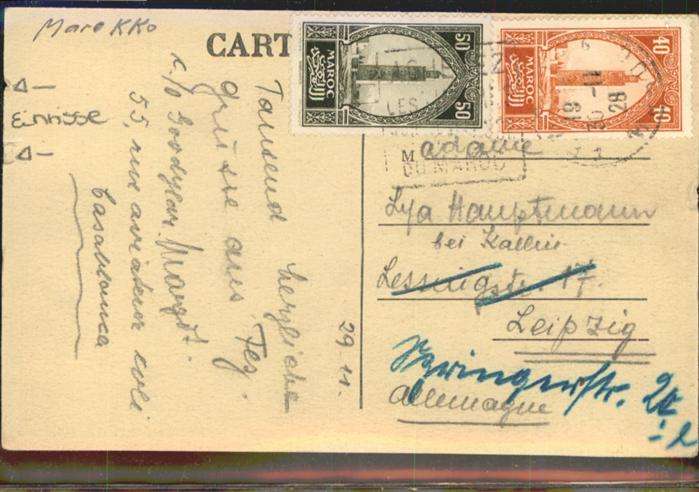 Marokko
CART
Einrisse
Tausend herzliche
Grüsse aus Fez.
Margot.
c/o Goodyear
55, rue aviateur Coli
Casablanca
29.11.
50 50
MAROC
40 40
MAROC
19
30-11
28
DU MAROC
Madame
Lya Hauptmann
bei Kallin
Lessingstr. 17.
Leipzig
Springerstr. 20
Allemagne